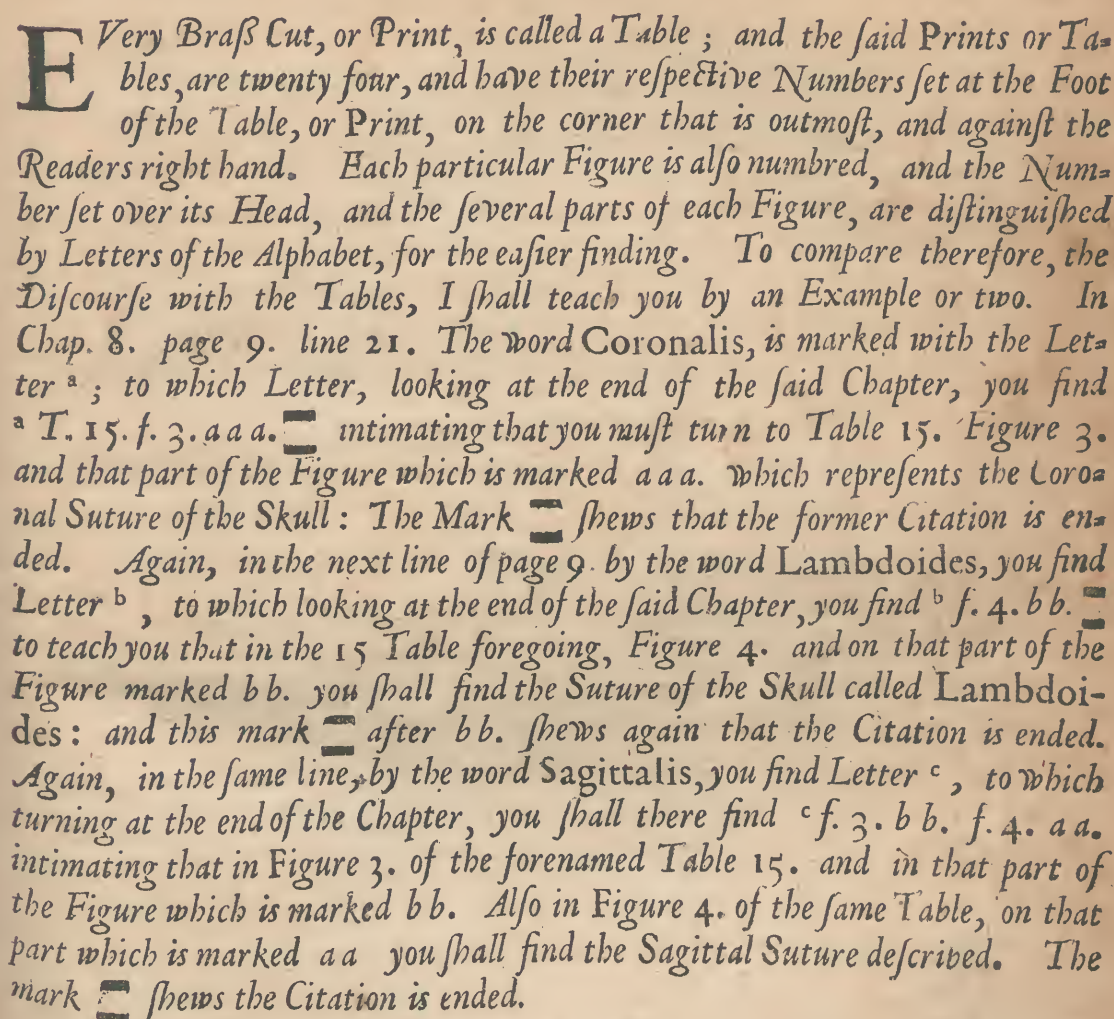 EVery Braß Cut, or Print, is called a Table ; and the ſaid Prints or Ta-
bles, are twenty four, and have their reſpective Numbers ſet at the Foot
of the Table, or Print, on the corner that is outmoſt, and againſt the
Readers right hand. Each particular Figure is alſo numbred, and the Num-
ber ſet over its Head, and the ſeveral parts of each Figure, are diſtinguiſhed
by Letters of the Alphabet, for the eaſier finding. To compare therefore, the
Diſcourſe with the Tables, I ſhall teach you by an Example or two. In
Chap. 8. page 9. line 21. The word Coronalis, is marked with the Let-
ter ᵃ ; to which Letter, looking at the end of the ſaid Chapter, you find
ᵃ T. 15. f. 3. a a a. intimating that you muſt turn to Table 15. Figure 3.
and that part of the Figure which is marked a a a. which repreſents the Coro-
nal Suture of the Skull : The Mark ſhews that the former Citation is en-
ded. Again, in the next line of page 9. by the word Lambdoides, you find
Letter ᵇ , to which looking at the end of the ſaid Chapter, you find ᵇ f. 4. b b.
to teach you that in the 15 Table foregoing, Figure 4. and on that part of the
Figure marked b b. you ſhall find the Suture of the Skull called Lambdoi-
des : and this mark after b b. ſhews again that the Citation is ended.
Again, in the ſame line, by the word Sagittalis, you find Letter ᶜ , to which
turning at the end of the Chapter, you ſhall there find ᶜ f. 3. b b. f. 4. a a.
intimating that in Figure 3. of the forenamed Table 15. and in that part of
the Figure which is marked b b. Alſo in Figure 4. of the ſame Table, on that
part which is marked a a you ſhall find the Sagittal Suture deſcribed. The
mark ſhews the Citation is ended.